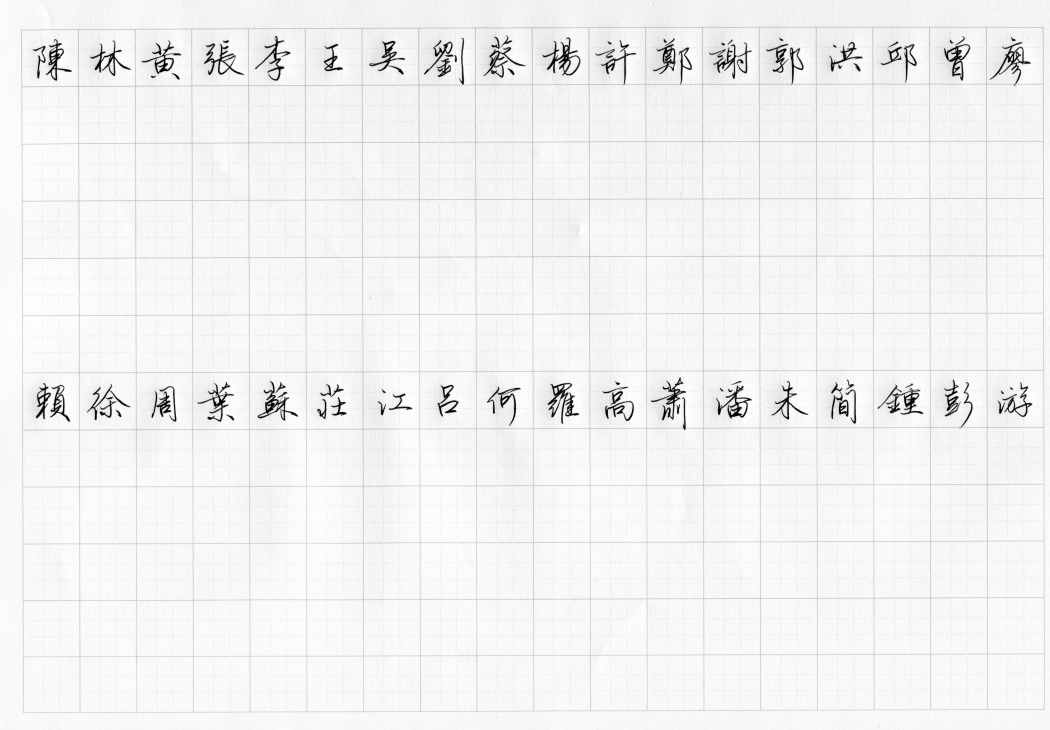 陳林黃張李王吳劉蔡楊許鄭謝郭洪邱曾廖
賴徐周葉蘇莊江呂何羅高蕭潘朱簡鍾彭游